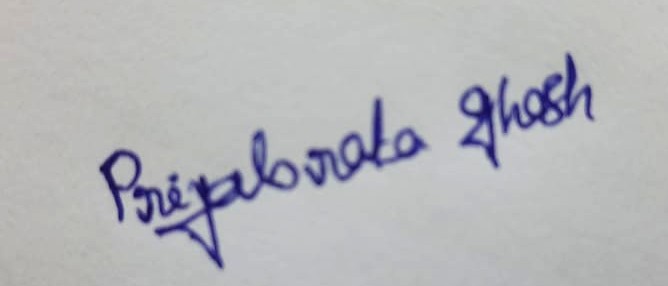 Priyabrata Ghosh